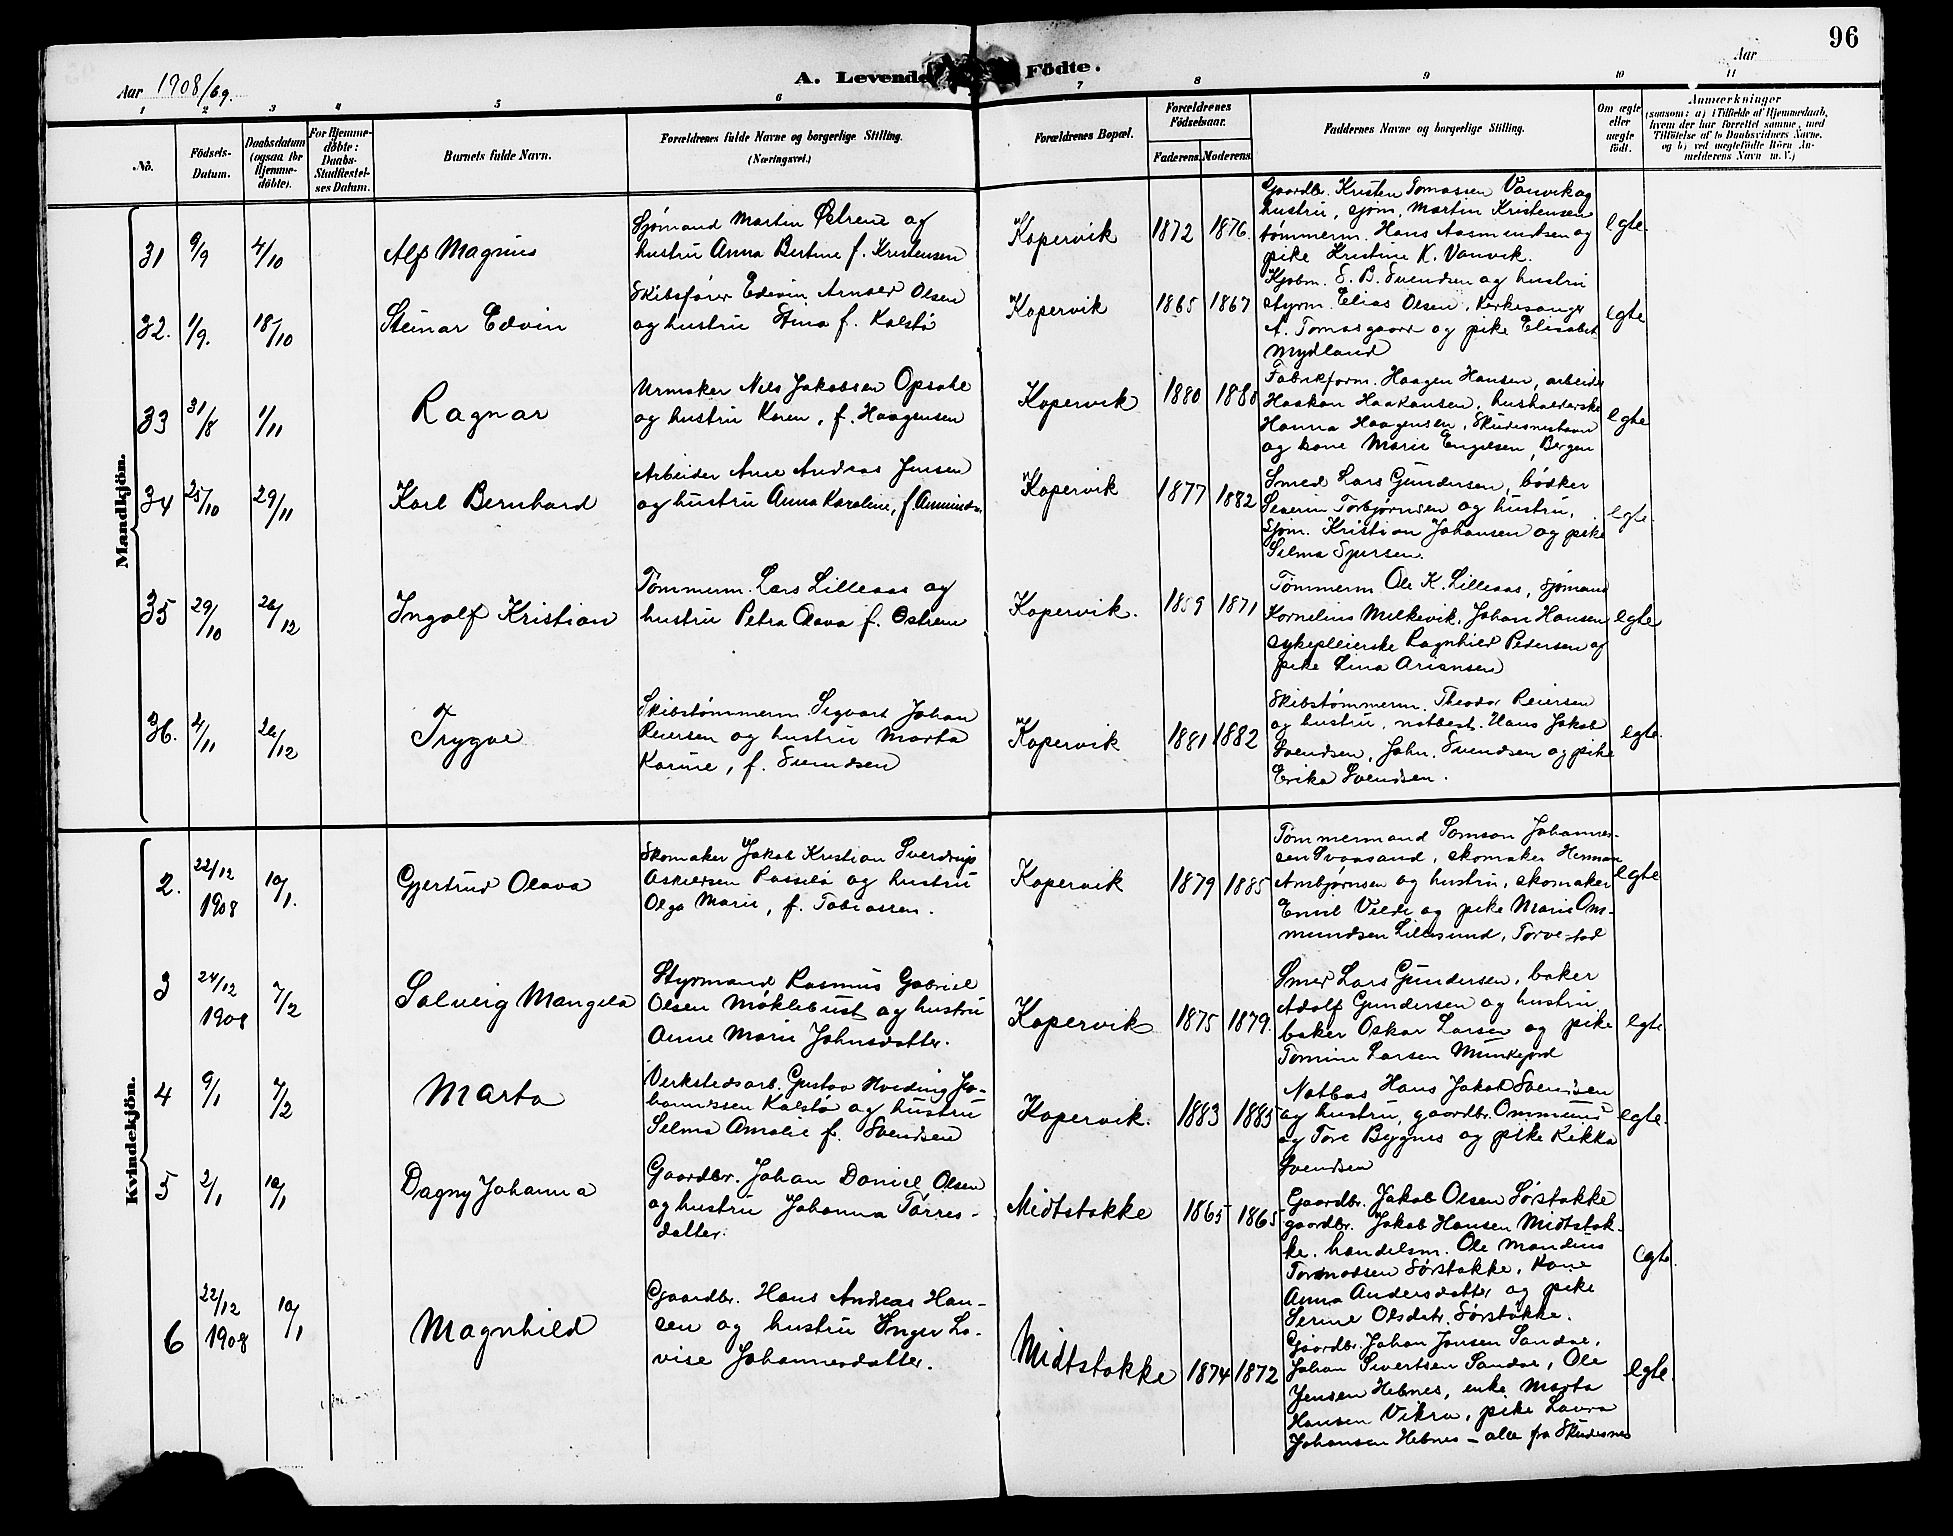 96
Aar 1908/09.
A. Levende Födte.
Aar
1 2 3 4 5 6 7 8 9 10 11
No.
Födsels-
Datum.
Daabsdatum
(ogsaa for
Hjemme-
döbte).
For Hjemme-
döbte:
Daabs-
Stadfæstel-
ses Datum.
Barnets fulde Navn.
Forældrenes fulde Navne og borgerlige Stilling.
(Næringsvei.)
Forældrenes Bopæl.
Forældrenes
Födselsaar.
Faderens. Moderens.
Faddernes Navne og borgerlige Stilling.
Om ægte
eller
uægte
födt.
Anmærkninger
(saasom: a) i Tilfælde af Hjemmedaab,
hvem der har forrettet samme, med
Tilföielse af to Daabsvidners Navne.
og b) ved uægtefödte Börn An-
melderens Navn m. V.)
Mandkjön.
31 9/9 4/10 Alf Magnus
Sjømand Martin Østrem og
hustru Anna Bertine f. Kristensen
Kopervik 1872 1876.
Gaardbr. Kristen Tomassen Vanvik og
hustru, sjøm. Martin Kristensen
tømmerm. Hans Aasmundsen og
pike Kristine K. Vanvik.
egte
32. 1/9. 18/10 Steinar Edvin
Skibsfører Edevin Arnold Olsen
og hustru Stina f. Kalstø
Kopervik 1865 1867
Kjøbm. S. B. Svendsen og hustru
styrm. Elias Olsen, kirkesanger
A. Tomasgaard og pike Elisabet
Mydland
egte
33 31/8 1/11 Ragnar
Urmaker Nils Jakobsen Opsahl
og hustru Karen, f. Haagensen
Kopervik 1880 1880
Fabrikform. Haagen Hansen, arbeider
Haakon Haakonsen, husholderske
Hanna Haagensen, Skudesneshavn
og kone Marie Engelsen, Bergen
egte
34 25/10 29/11 Karl Bernhard
Arbeider Arne Andreas Jensen
og hustru Anna Karoline, f.
Kopervik 1877 1882
Smed Lars Gundersen, bødker
Severin Torbjørnsen og hustru,
sjøm. Kristian Johansen og pike
Selma Syversen.
egte.
35 29/10 26/12 Ingolf Kristian
Tømmerm. Lars Lilleaas og
hustru Petra Olava f. Østrem
Kopervik. 1859 1871
Tømmerm Ole K. Lilleaas, sjømand
Kornelius Melkevik, Johan Hansen
sykepleierske Ragnhild Pedersen og
pike Lina Ariansen
egte
36. 4/11 26/12 Trygve
Skibstømmerm. Sigvart Johan
Reiersen og hustru Marta
Karine, f. Svendsen
Kopervik 1881 1882
Skibstømmerm. Theodor Reiersen
og hustru, notbest. Hans Jakob
Svendsen, John. Svendsen og pike
Erika Svendsen.
egte.
Kvindekjön.
2. 22/12 1908 10/1. Gjertrud Olava
Skomaker Jakob Kristian Sverdrup
Askildsen og hustru
Olga Marie, f. Tobiassen.
Kopervik 1879 1885
Tømmermand Samson Johannes-
sen Svaasand, skomaker Herman
Arnbjørnsen og hustru, skomaker
Emil Velde og pike Marie Om-
mundsen Lillesund, Torvestad
egte
3 24/12 1908 7/2 Solveig Mangela
Styrmand Rasmus Gabriel
Olsen Møklebust og hustru
Anne Marie Johnsdatter.
Kopervik 1875 1879.
Smed Lars Gundersen, baker
Adolf Gundersen og hustru
baker Oskar Larsen og pike
Tomine Larsen Munkejord
egte
4 9/1 7/2 Marta
Verkstedsarb. Gustav Hveding Jo-
hannessen Kalstø og hustru
Selma Amalie f. Svendsen
Kopervik. 1883 1885
Notbas Hans Jakob Svendsen
og hustru, gaardbr. Ommund
og Tore Bygnes og pike Rikka
Svendsen
egte.
5 2/1 10/1 Dagny Johanna
Gaardbr. Johan Daniel Olsen
og hustru Johanna Tørres-
datter.
Midtstokke 1865 1865
Gaardbr. Jakob Olsen Sørstokke
gaardbr. Jakob Hansen Midtstok-
ke. handelsm. Ole Mandius
Tormodsen Sørstokke, kone
Anna Andersdatter og pike
Serine Olsdatr. Sørstokke.
egte.
6 22/12 1908 10/1 Magnhild
Gaardbr. Hans Andreas Han-
sen og hustru Inger Lo-
vise Johannesdatter.
Midtstokke 1874 1872
Gaardbr. Johan Jensen Sandøe,
Johan Sivertsen Sandøe, Ole
Jensen Hebnes, enke Marta
Hansen Vikra, pike Laura
Johansen Hebnes – alle fra Skudesnes
egte.